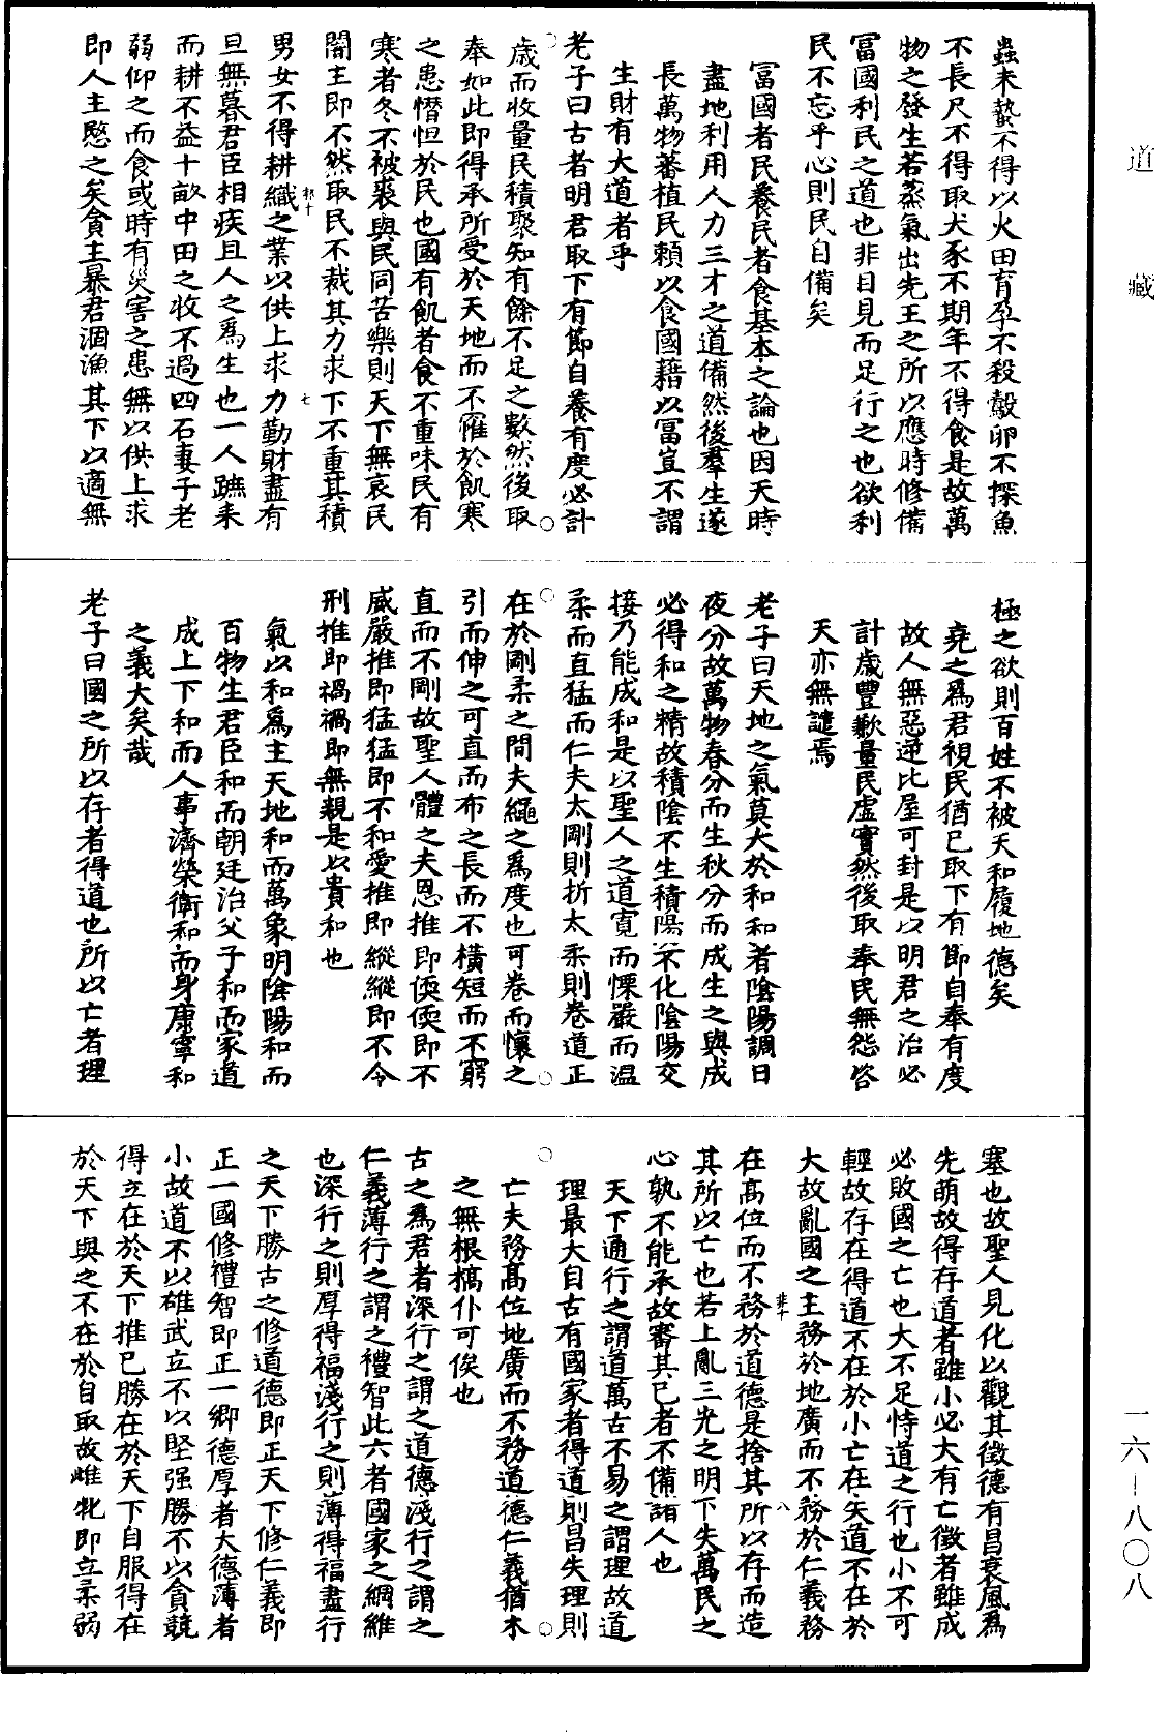 道藏
蟲未蟄不得以火田育孕不殺鷇卵不探魚
不長尺不得取犬豕不期年不得食是故萬
物之發生若蒸氣出先王之所以應時修備
冨國利民之道也非目見而足行之也欲利
民不忘乎心則民自備矣
冨國者民養民者食基本之論也因天時
盡地利用人力三才之道備然後羣生遂
長萬物蕃植民賴以食國藉以冨豈不謂
生財有大道者乎
老子曰古者明君取下有節自養有度必計
歲而收量民積聚知有餘不足之數然後取
奉如此即得承所受於天地而不罹於飢寒
之患憯怛於民也國有飢者食不重味民有
寒者冬不被裘與民同苦樂則天下無哀民
闇主即不然取民不裁其力求下不重其積
男女不得耕織之業以供上求力勤財盡有
旦無暮君臣相疾且人之爲生也一人蹠耒
而耕不益十畝中田之收不過四石妻子老
弱仰之而食或時有災害之患無以供上求
即人主愍之矣貪主暴君涸漁其下以適無
極之欲則百姓不被天和履地德矣
堯之爲君視民猶己取下有節自奉有度
故人無惡逆比屋可封是以明君之治必
計歲豐歉量民虛實然後取奉民無怨咨
天亦無譴焉
老子曰天地之氣莫大於和和者陰陽調日
夜分故萬物春分而生秋分而成生之與成
必得和之精故積陰不生積陽不化陰陽交
接乃能成和是以聖人之道寬而慄嚴而温
柔而直猛而仁夫太剛則折太柔則卷道正
在於剛柔之間夫繩之爲度也可卷而懷之
引而伸之可直而布之長而不橫短而不窮
直而不剛故聖人體之夫恩推即偄偄即不
威嚴推即猛猛即不和愛推即縱縱即不令
刑推即禍禍即無親是以貴和也
氣以和爲主天地和而萬象明陰陽和而
百物生君臣和而朝廷治父子和而家道
成上下和而人事濟榮衛和而身康寧和
之義大矣哉
老子曰國之所以存者得道也所以亡者理
塞也故聖人見化以觀其徵德有昌衰風爲
先萌故得存道者雖小必大有亡徵者雖成
必敗國之亡也大不足恃道之行也小不可
輕故存在得道不在於小亡在失道不在於
大故亂國之主務於地廣而不務於仁義務
在髙位而不務於道德是捨其所以存而造
其所以亡也若上亂三光之明下失萬民之
心孰不能承故審其已者不備諸人也
天下通行之謂道萬古不易之謂理故道
理最大自古有國家者得道則昌失理則
亡夫務髙位地廣而不務道德仁義猶木
之無根槁仆可俟也
古之爲君者深行之謂之道德淺行之謂之
仁義薄行之謂之禮智此六者國家之綱維
也深行之則厚得福淺行之則薄得福盡行
之天下勝古之修道德即正天下修仁義即
正一國修禮智即正一鄉德厚者大德薄者
小故道不以雄武立不以堅强勝不以貪競
得立在於天下推已勝在於天下自服得在
於天下與之不在於自取故雌牝即立柔弱
一六—八〇八